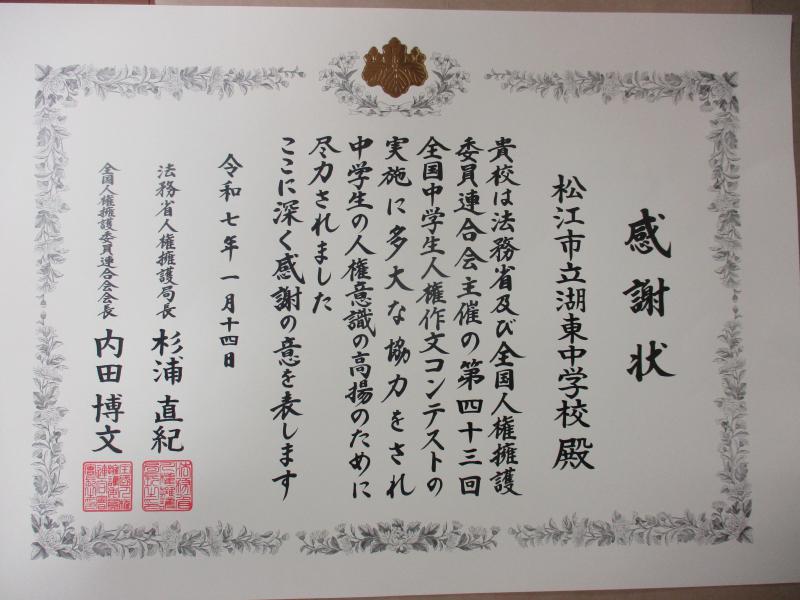 感謝状
松江市立湖東中学校 殿
貴校は法務省及び全国人権擁護
委員連合会主催の第四十三回
全国中学生人権作文コンテストの
実施に多大な協力をされ
中学生の人権意識の高揚のために
尽力されました
ここに深く感謝の意を表します
令和七年一月十四日
法務省人権擁護局長 杉浦直紀
全国人権擁護委員連合会会長 内田博文